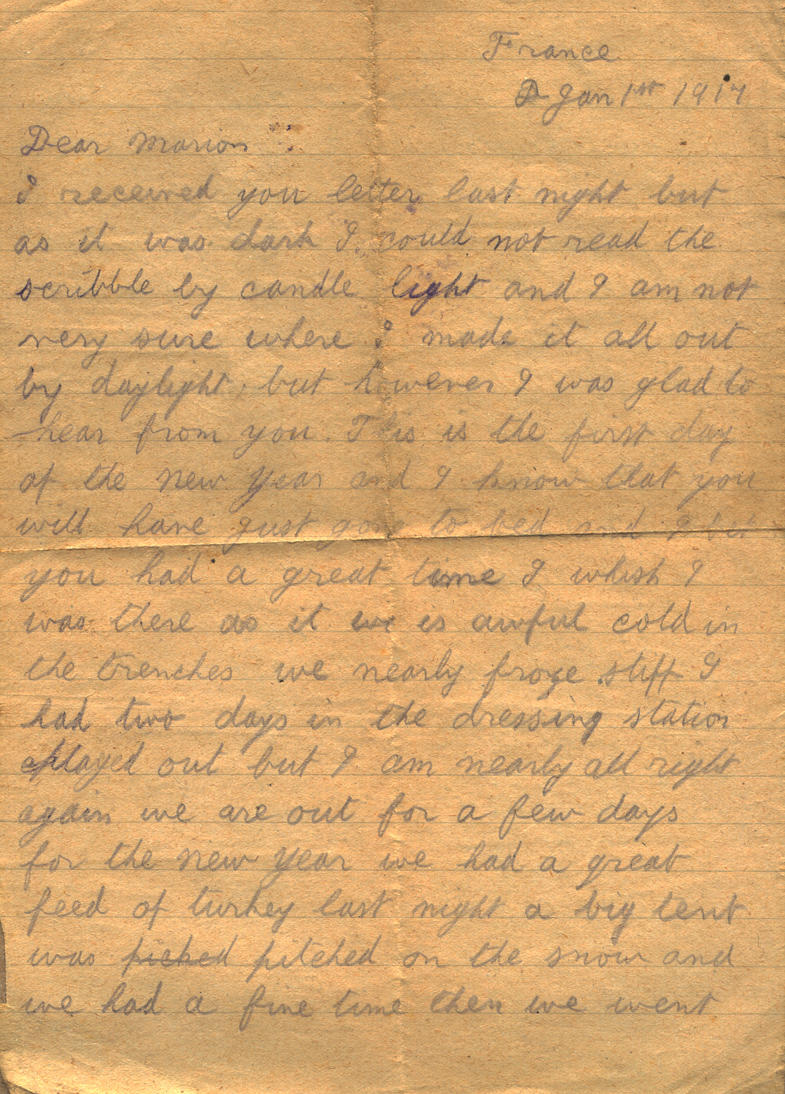 France
Jan 1st 1917
Dear Marion
I received you letter last night but
as it was dark I could not read the
scribble by candle light and I am not
very sure where I made it all out
by daylight, but however I was glad to
hear from you. This is the first day
of the new year and I know that you
will have just gone to bed and I bet
you had a great time I whish I
was there as it we is awful cold in
the trenches we nearly froze stiff I
had two days in the dressing station
played out but I am nearly all right
again we are out for a few days
for the new year we had a great
feed of turkey last night a big tent
was picked pitched on the snow and
we had a fine time then we went